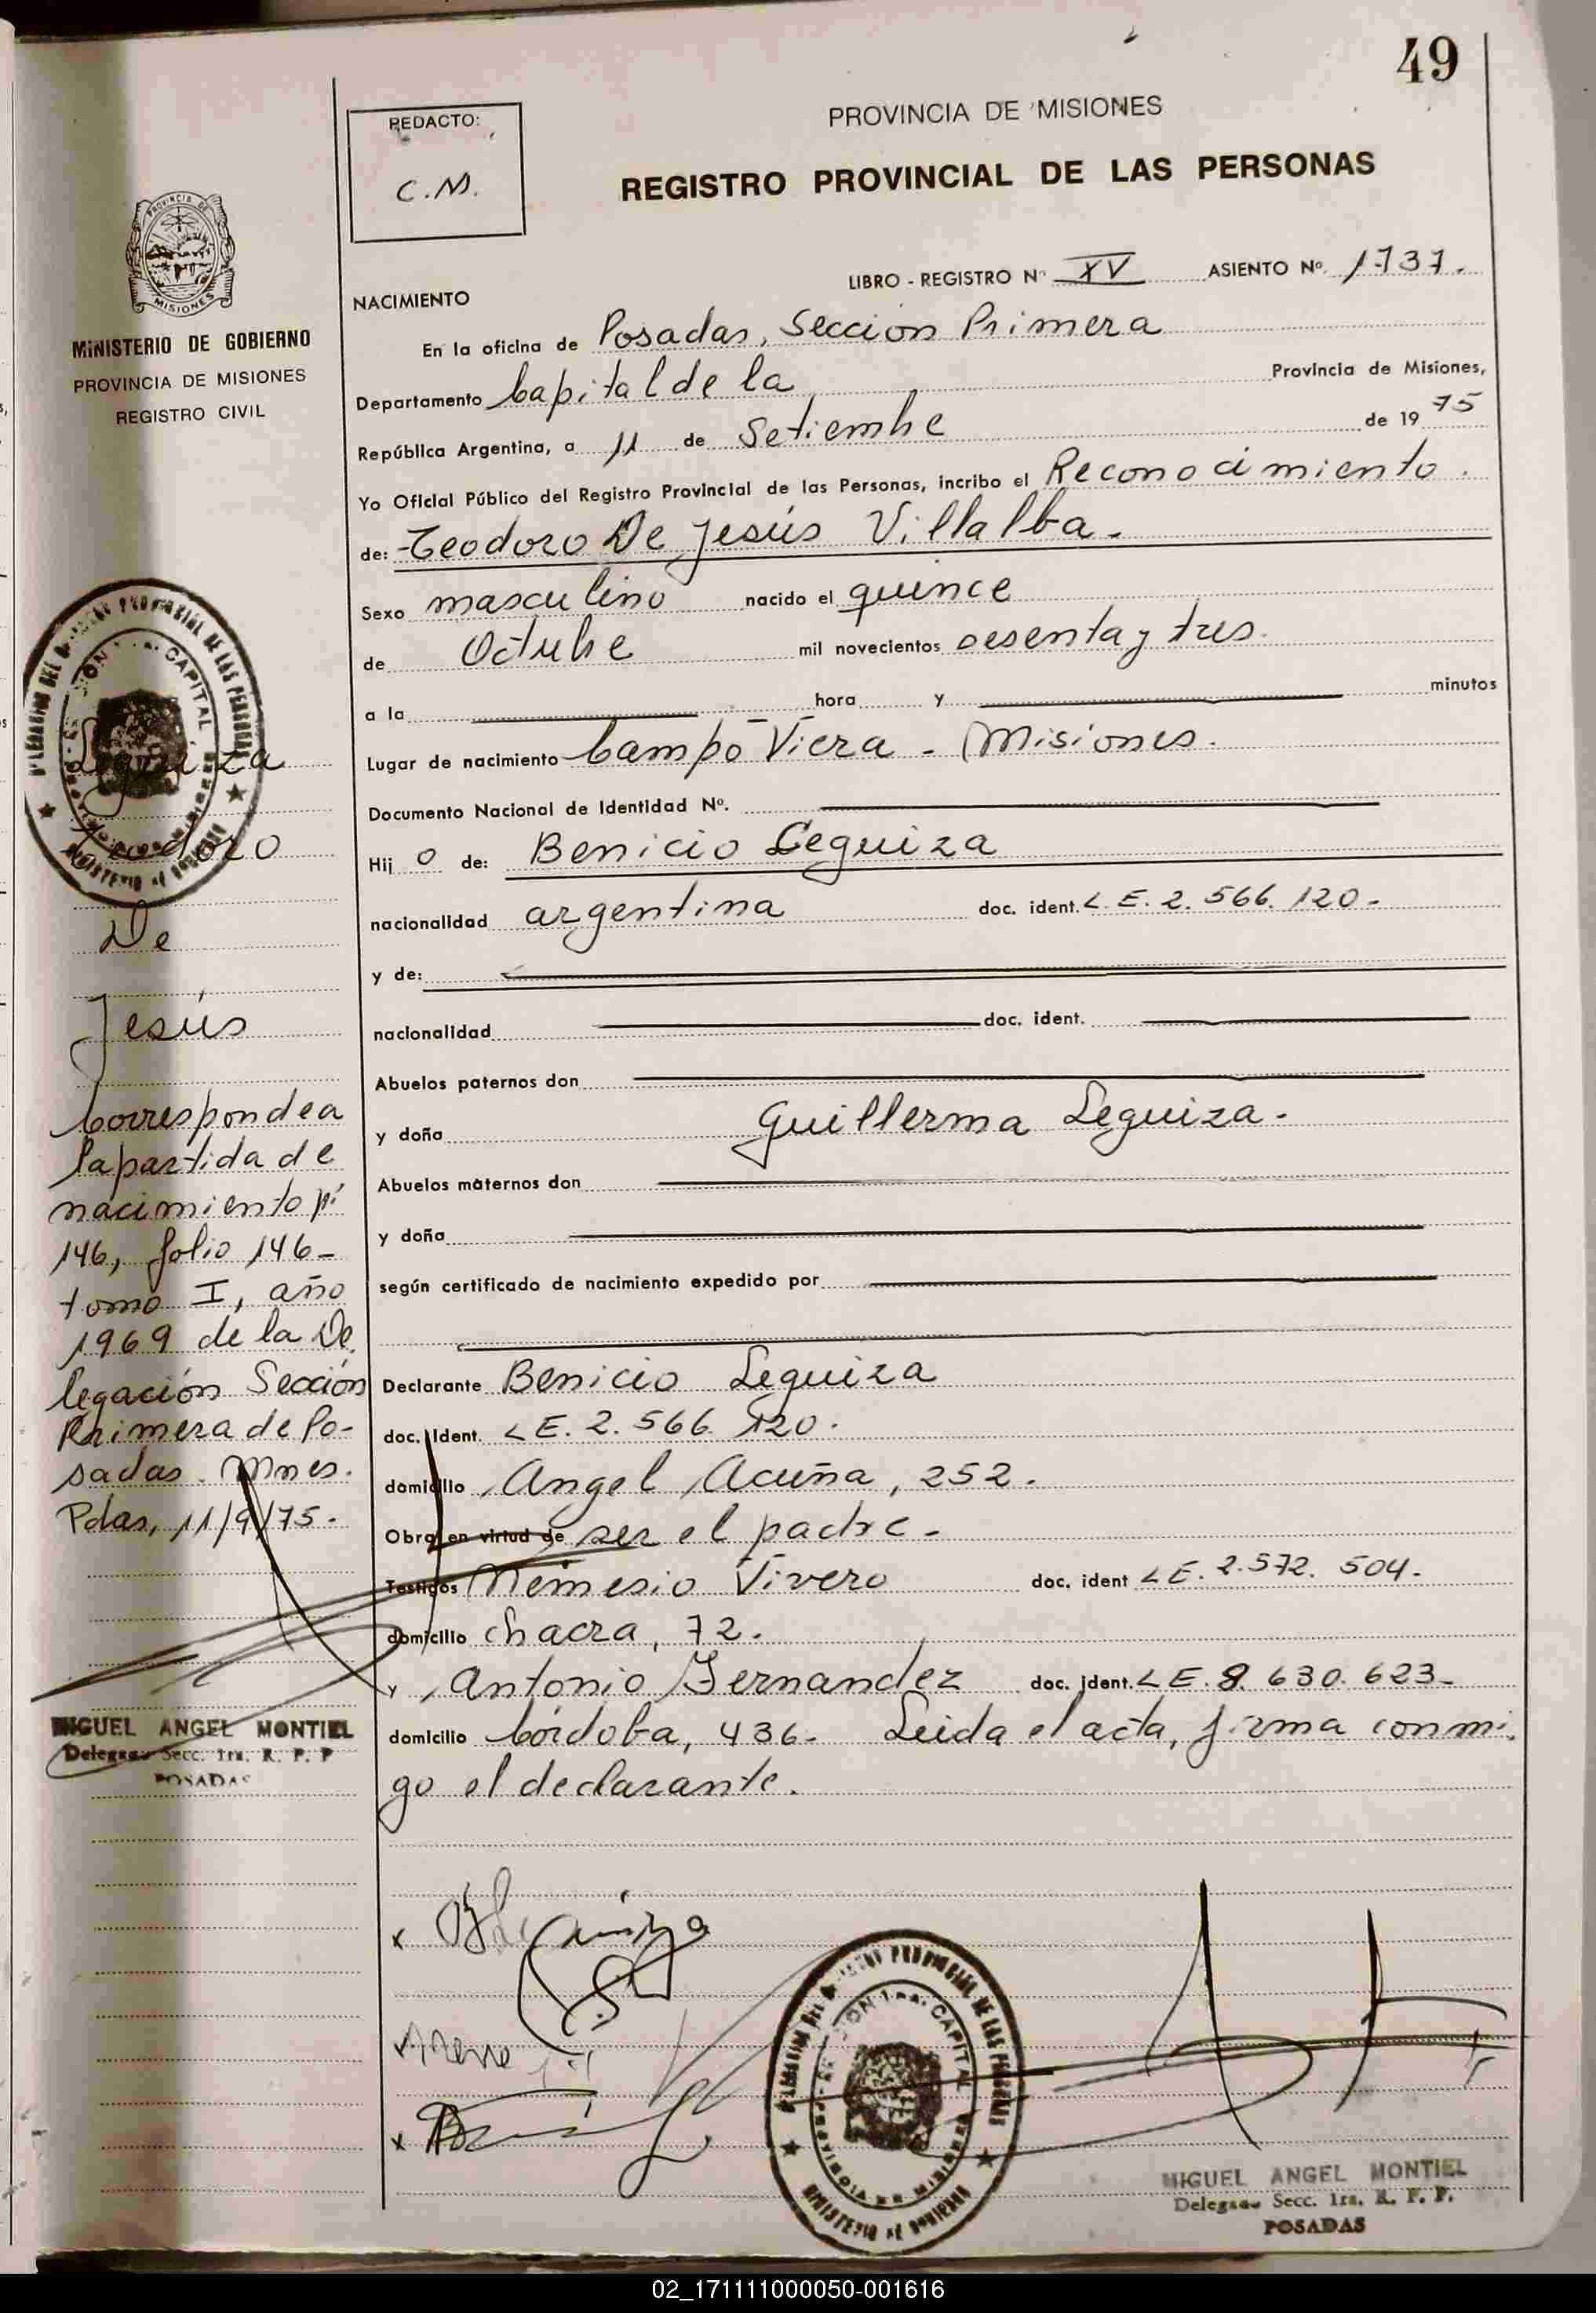 49
REDACTO:
C.M.
PROVINCIA DE MISIONES
REGISTRO PROVINCIAL DE LAS PERSONAS
LIBRO - REGISTRO Nº XV ASIENTO Nº 1737.
NACIMIENTO
En la oficina de Posadas, Seccion Primera
Departamento Capital de la Provincia de Misiones,
República Argentina, a 11 de Setiembre de 19 75
Yo Oficial Público del Registro Provincial de las Personas, incribo el Reconocimiento.
de: Teodoro De Jesús Villalba.
Sexo masculino nacido el quince
de Octubre mil novecientos sesenta y tres.
a la hora y minutos
Lugar de nacimiento Campo Viera - Misiones.
Documento Nacional de Identidad Nº.
Hij o de: Benicio Leguiza
nacionalidad argentina doc. ident. L.E. 2.566.120.-
y de:
nacionalidad doc. ident.
Abuelos paternos don
y doña Guillerma Leguiza.
Abuelos maternos don
y doña
según certificado de nacimiento expedido por
Declarante Benicio Leguiza
doc. Ident. L.E. 2.566.120.
domicilio Angel Acuña, 252.
Obra en virtud de ser el padre.
Testigos Nemesio Vivero doc. ident L.E. 2.572.504.
domicilio Chacra, 72.
y Antonio Fernandez doc. ident. L.E. 8.630.623-
domicilio Córdoba, 436. Leida el acta, firma conmi-
go el declarante.
MIGUEL ANGEL MONTIEL
Delegado Secc. 1ra. R. P. P.
POSADAS
PROVINCIA DE
MISIONES
MINISTERIO DE GOBIERNO
PROVINCIA DE MISIONES
REGISTRO CIVIL
Leguiza
Teodoro
De
Jesús
Corresponde a
la partida de
nacimiento nº
146, folio 146-
tomo I, año
1969 de la De
legación Sección
Primera de Po-
sadas. Mnes.
Pdas, 11/9/75.
MIGUEL ANGEL MONTIEL
Delegado Secc. 1ra. R. P. P
POSADAS
02_171111000050-001616